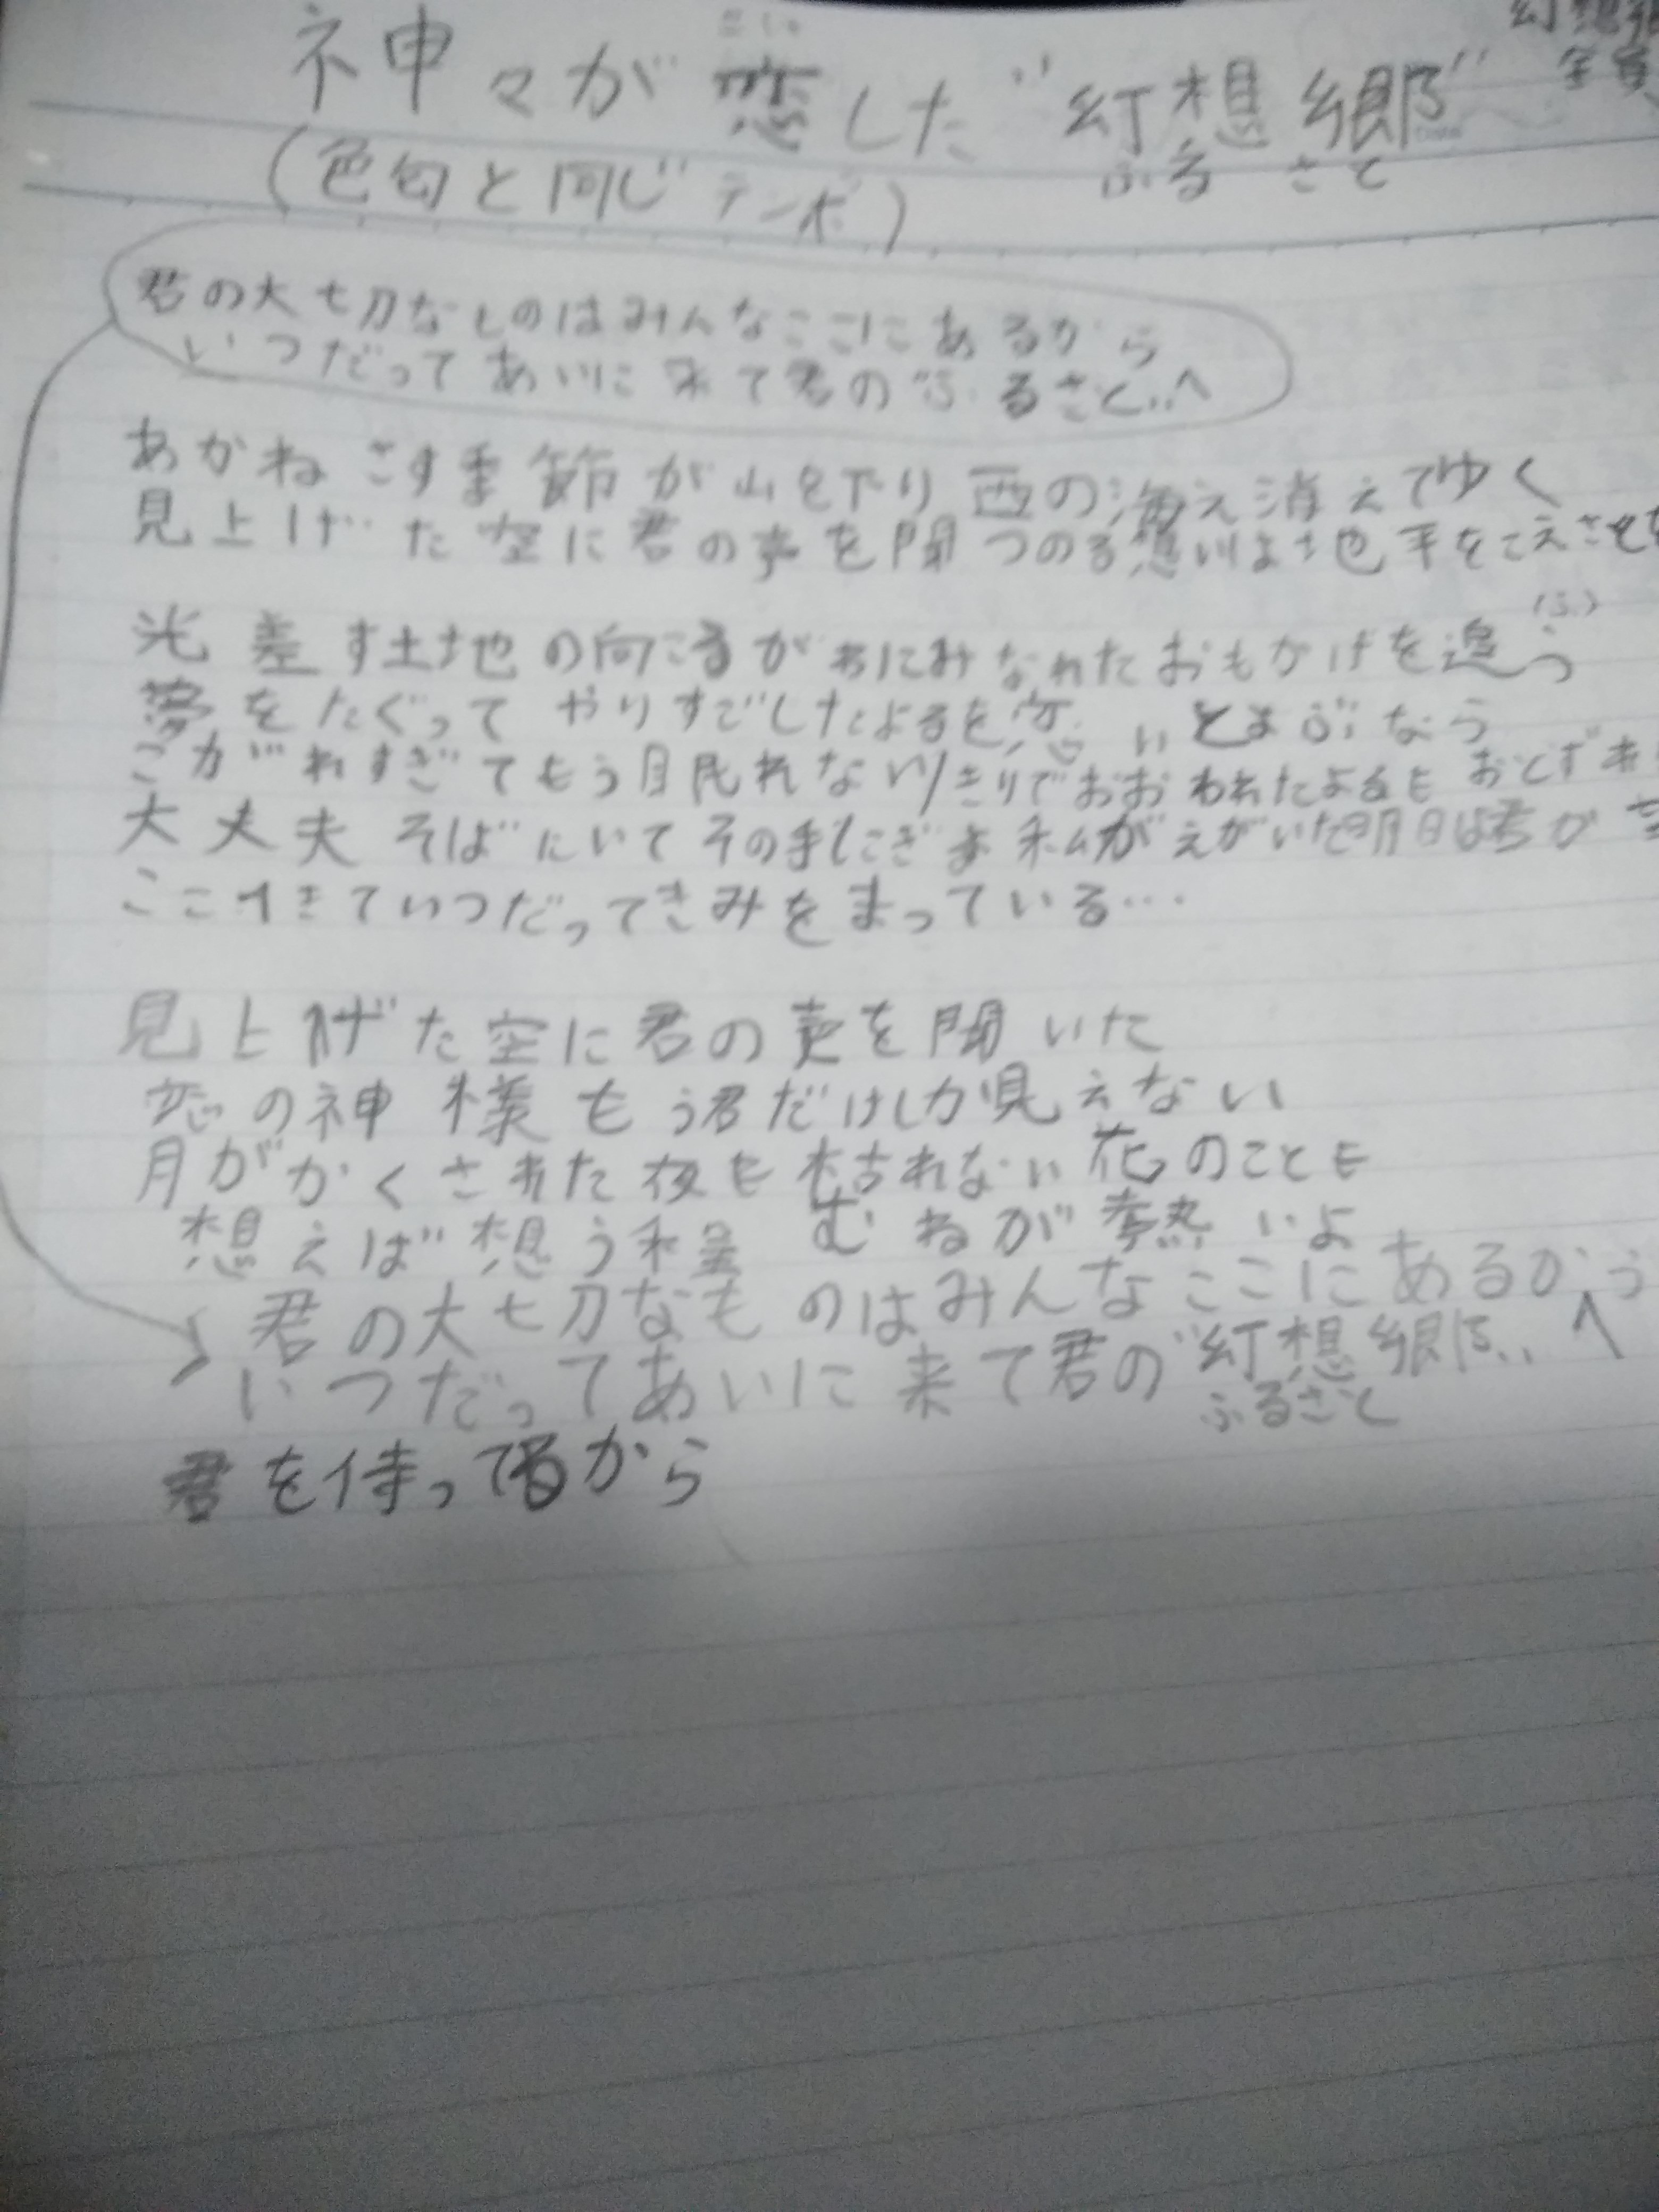 幻想郷
全員
神々が恋した"幻想郷"
こい
ふるさと
(色匂と同じテンポ)
君の大切なものはみんなここにあるから
いつだってあいに来て君の"ふるさと"へ
あかねこす季節が山を下り西の海え消えてゆく
見上げた空に君の声を聞 つのる想いは地平をこえさせを
光差す土地の向こうがわにみなれたおもかげを追う
(ふ)
夢をたぐって やりすごしたよるを恋いとよぶなら
こがれすぎてもう眠れない きりでおおわれたよるも おとず
大丈夫 そばにいて その手にぎよ 私がえがいた明日は君が
ここ きていつだってきみをまっている…
見上げた空に君の声を聞いた
恋の神様もう君だけしか見えない
月がかくされた夜も枯れない花のことも
想えば想う程 むねが熱いよ
君の大切なものはみんなここにあるから
いつだってあいに来て君の"幻想郷"へ
ふるさと
君を待ってるから